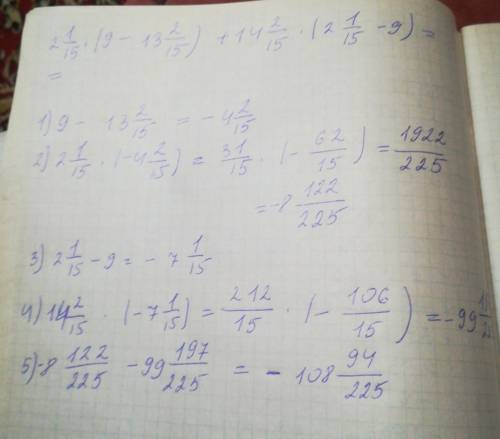 2 1/15 · (9 - 13 2/15) + 14 2/15 · (2 1/15 - 9) =
=
1) 9 - 13 2/15 = - 4 2/15
2) 2 1/15 · (-4 2/15) = 31/15 · (- 62/15) = 1922/225
= -8 122/225
3) 2 1/15 - 9 = - 7 1/15
4) 14 2/15 · (-7 1/15) = 212/15 · (- 106/15) = -99
5) -8 122/225 - 99 197/225 = - 108 94/225